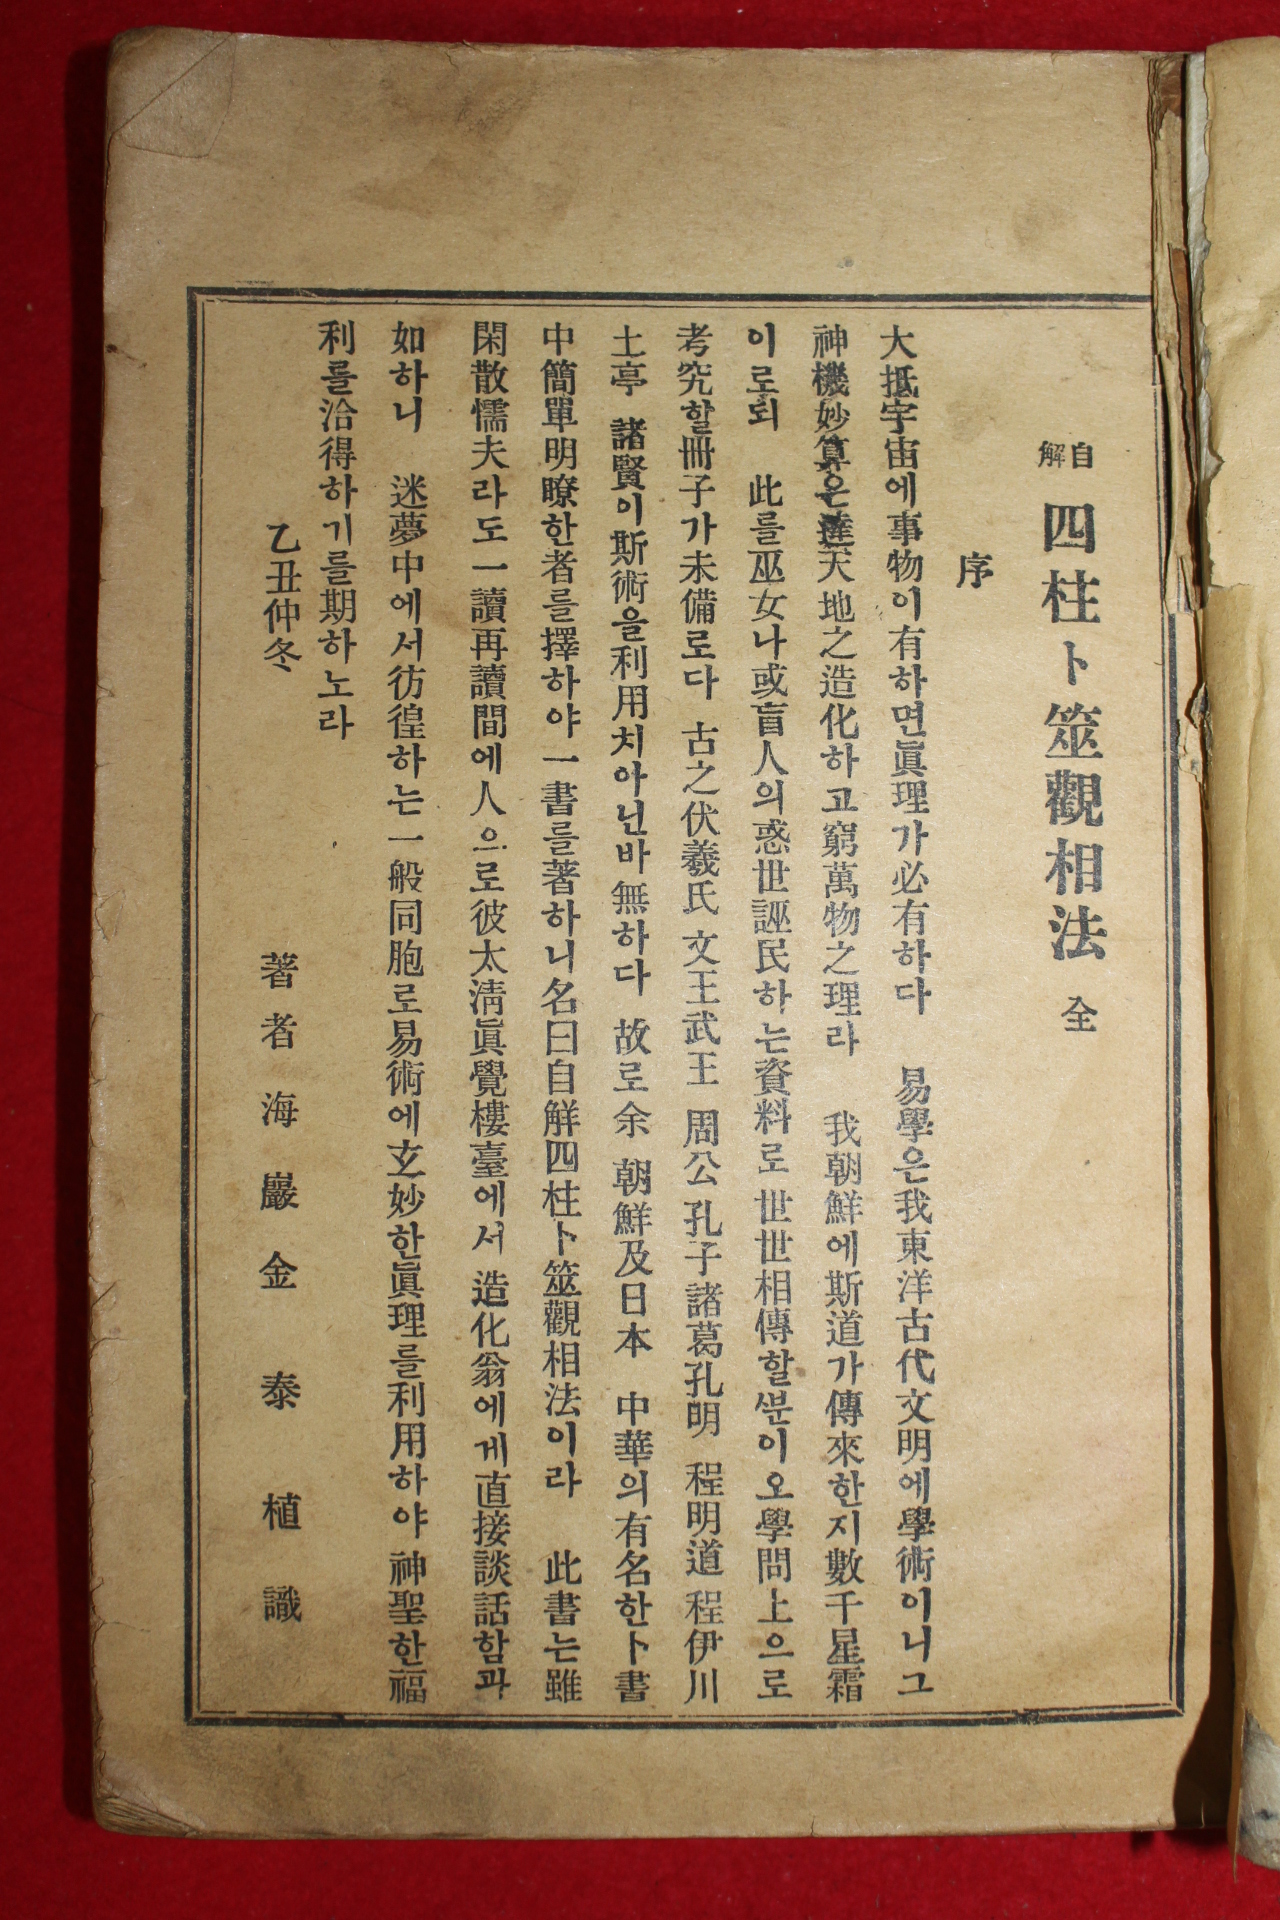 自解 四柱卜筮觀相法 全
序
大抵宇宙에事物이有하면眞理가必有하다 易學은我東洋古代文明에學術이니그
神機妙算은達天地之造化하고窮萬物之理라 我朝鮮에斯道가傳來한지數千星霜
이로되 此를巫女나或盲人의惑世誣民하는資料로世世相傳할ᄲᅮᆫ이오學問上으로
考究할冊子가未備로다 古之伏羲氏 文王武王 周公孔子諸葛孔明 程明道 程伊川
土亭 諸賢이斯術을利用치아닌바無하다 故로余 朝鮮及日本 中華의有名한卜書
中簡單明瞭한者를擇하야一書를著하니名曰自解四柱卜筮觀相法이라 此書는雖
閑散懦夫라도一讀再讀間에人으로彼太淸眞覺樓臺에서 造化翁에게直接談話함과
如하니 迷夢中에서彷徨하는一般同胞로易術에玄妙한眞理를利用하야 神聖한福
利를洽得하기를期하노라
乙丑仲冬
著者 海巖 金泰植 識